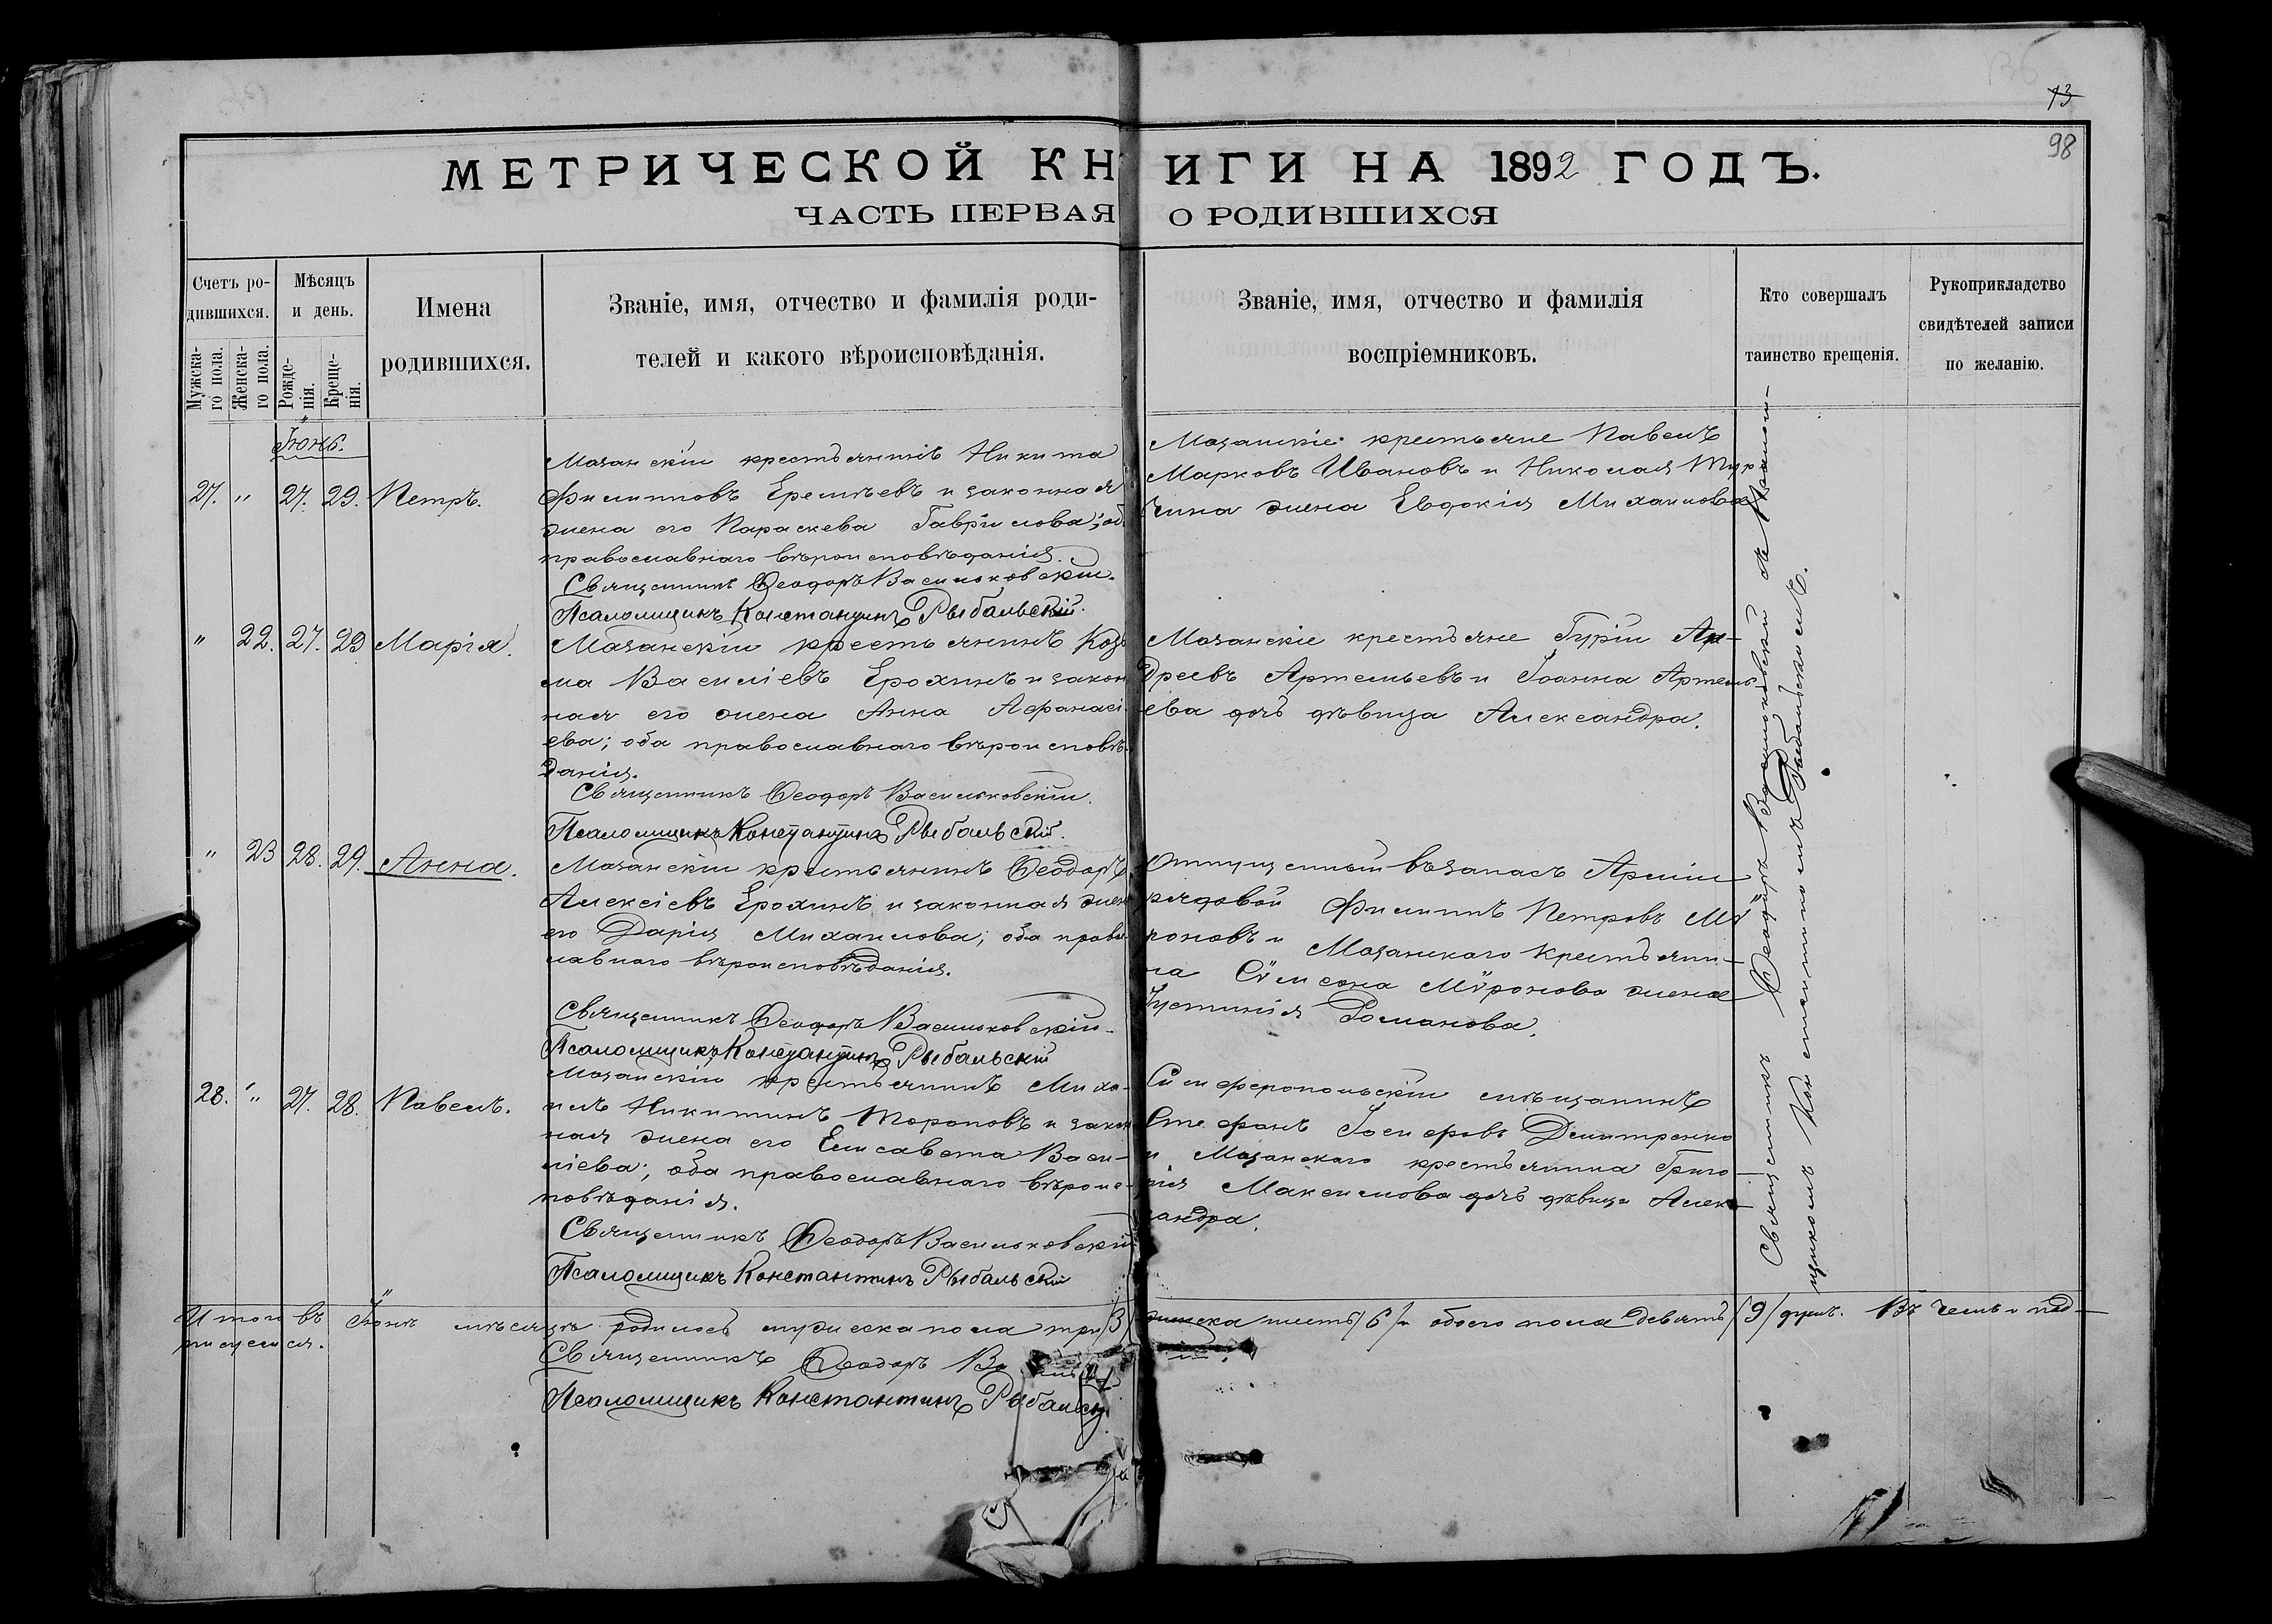 13
98
МЕТРИЧЕСКОЙ КНИГИ НА 1892 ГОДЪ.
ЧАСТЬ ПЕРВАЯ О РОДИВШИХСЯ
Счетъ ро-
дившихся.
Мужска-
го пола.
Женска-
го пола.
Мѣсяцъ
и день.
Рожде-
нія.
Креще-
нія.
Имена
родившихся.
Званіе, имя, отчество и фамилія роди-
телей и какого вѣроисповѣданія.
Званіе, имя, отчество и фамилія
воспріемниковъ.
Кто совершалъ
таинство крещенія.
Рукоприкладство
свидѣтелей записи
по желанію.
Іюнь.
27. " 27. 29. Петръ.
Мазанскій крестьянинъ Никита
Филипповъ Еремѣевъ и законная
жена его Параскева Гаврілова; об
православнаго вѣроисповѣданія.
Священникъ Ѳеодоръ Васильковскій.
Псаломщикъ Константинъ Рыбальскій.
Мазанскіе крестьяне Павелъ
Марковъ Ивановъ и Николая Тюр
бина жена Евдокія Михаилова
" 22. 27. 29 Марія.
Мазанскій крестьянинъ Козь
ма Василіевъ Ерохинъ и закон
ная его жена Анна Афанасі
ева; оба православнаго вѣроисповѣ-
данія.
Священникъ Ѳеодоръ Васильковскій.
Псаломщикъ Константинъ Рыбальскій.
Мазанскіе крестьяне Гурій Ан-
дреевъ Артемьевъ и Іоанна Артемь
ева дочь дѣвица Александра.
" 23 28. 29. Анна.
Мазанскій крестьянинъ Ѳеодоръ
Алексіевъ Ерохинъ и законная жен
его Дарія Михаилова; оба правос
лавнаго вѣроисповѣданія.
Священникъ Ѳеодоръ Васильковскій.
Псаломщикъ Константинъ Рыбальскій
Отпущенный въ запасъ Арміи
рядовой Филиппъ Петровъ Мѵ
роновъ и Мазанскаго крестьяни-
на Сѵмеона Мѵронова жена
Іустинія Романова.
28. " 27. 28. Павелъ.
Мазанскій крестьянинъ Миха-
илъ Никитинъ Тороповъ и закон
ная жена его Елисавета Васи-
ліева; оба православнаго вѣроис-
повѣданія.
Священникъ Ѳеодоръ Васильковскій
Псаломщикъ Константинъ Рыбальскій
Симферопольскій мѣщанинъ
Стефанъ Іосифовъ Дмитренко
и Мазанскаго крестьянина Григо-
рія Максимова дочь дѣвица Алек
сандра.
Священникъ Ѳеодоръ Васильковскій съ Псалом-
щикомъ Константиномъ Рыбальскимъ.
Итого въ Іюнѣ мѣсяцѣ родилось мужеска пола три /3/ женска шесть /6/ и обоего пола девять /9/ душъ. Въ чемъ и под-
писуемся.
Священникъ Ѳеодоръ
Псаломщикъ Константинъ Рыбальскі